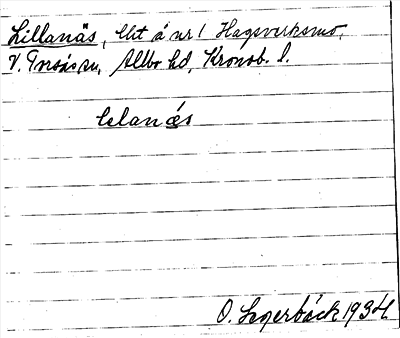 Lillanäs, lht å nr 1 Hagsverksmo,
V. Torsås sn, Allbo hd, Kronob. l.
lelanäs
O. Lagerbäck 1934